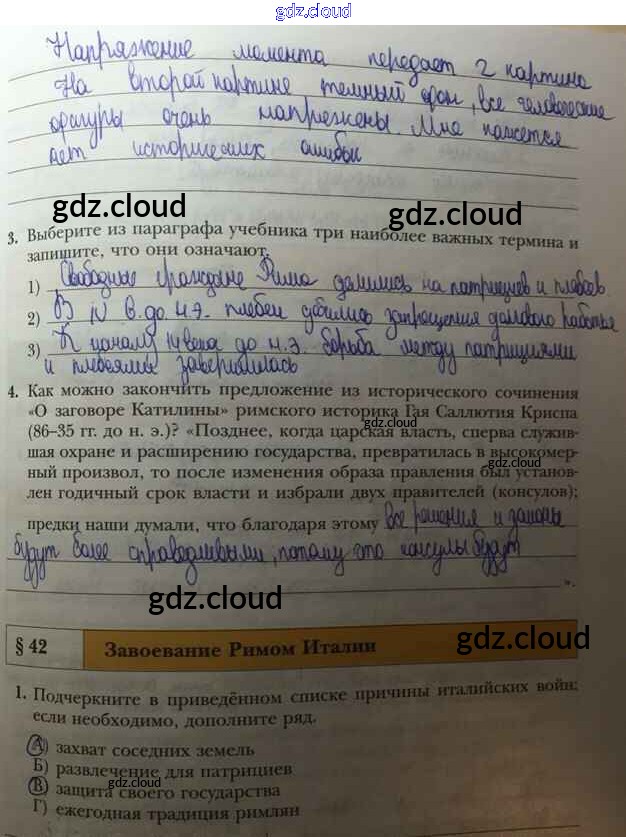 gdz.cloud
Напряжение момента передает 2 картина
На второй картине темный фон, все человеческие
фигуры очень напряжены. Мне кажется
нет исторических ошибок
gdz.cloud
gdz.cloud
3. Выберите из параграфа учебника три наиболее важных термина и
запишите, что они означают.
1) Свободные граждане Рима делились на патрициев и плебеев
2) В IV в. до н.э. плебеи добились запрещения долгового рабства
3) К началу века до н.э. борьба между патрициями
и плебеями завершилась
4. Как можно закончить предложение из исторического сочинения
«О заговоре Катилины» римского историка Гая Саллютия Криспа
(86–35 гг. до н. э.)? «Позднее, когда царская власть, сперва служив-
шая охране и расширению государства, превратилась в высокомер-
ный произвол, то после изменения образа правления был установ-
лен годичный срок власти и избрали двух правителей (консулов);
предки наши думали, что благодаря этому все решения и законы
будут более справедливыми, потому что консулы будут
».
gdz.cloud
gdz.cloud
§ 42 Завоевание Римом Италии
gdz.cloud
1. Подчеркните в приведённом списке причины италийских войн;
если необходимо, дополните ряд.
А) захват соседних земель
Б) развлечение для патрициев
В) защита своего государства
Г) ежегодная традиция римлян
gdz.cloud